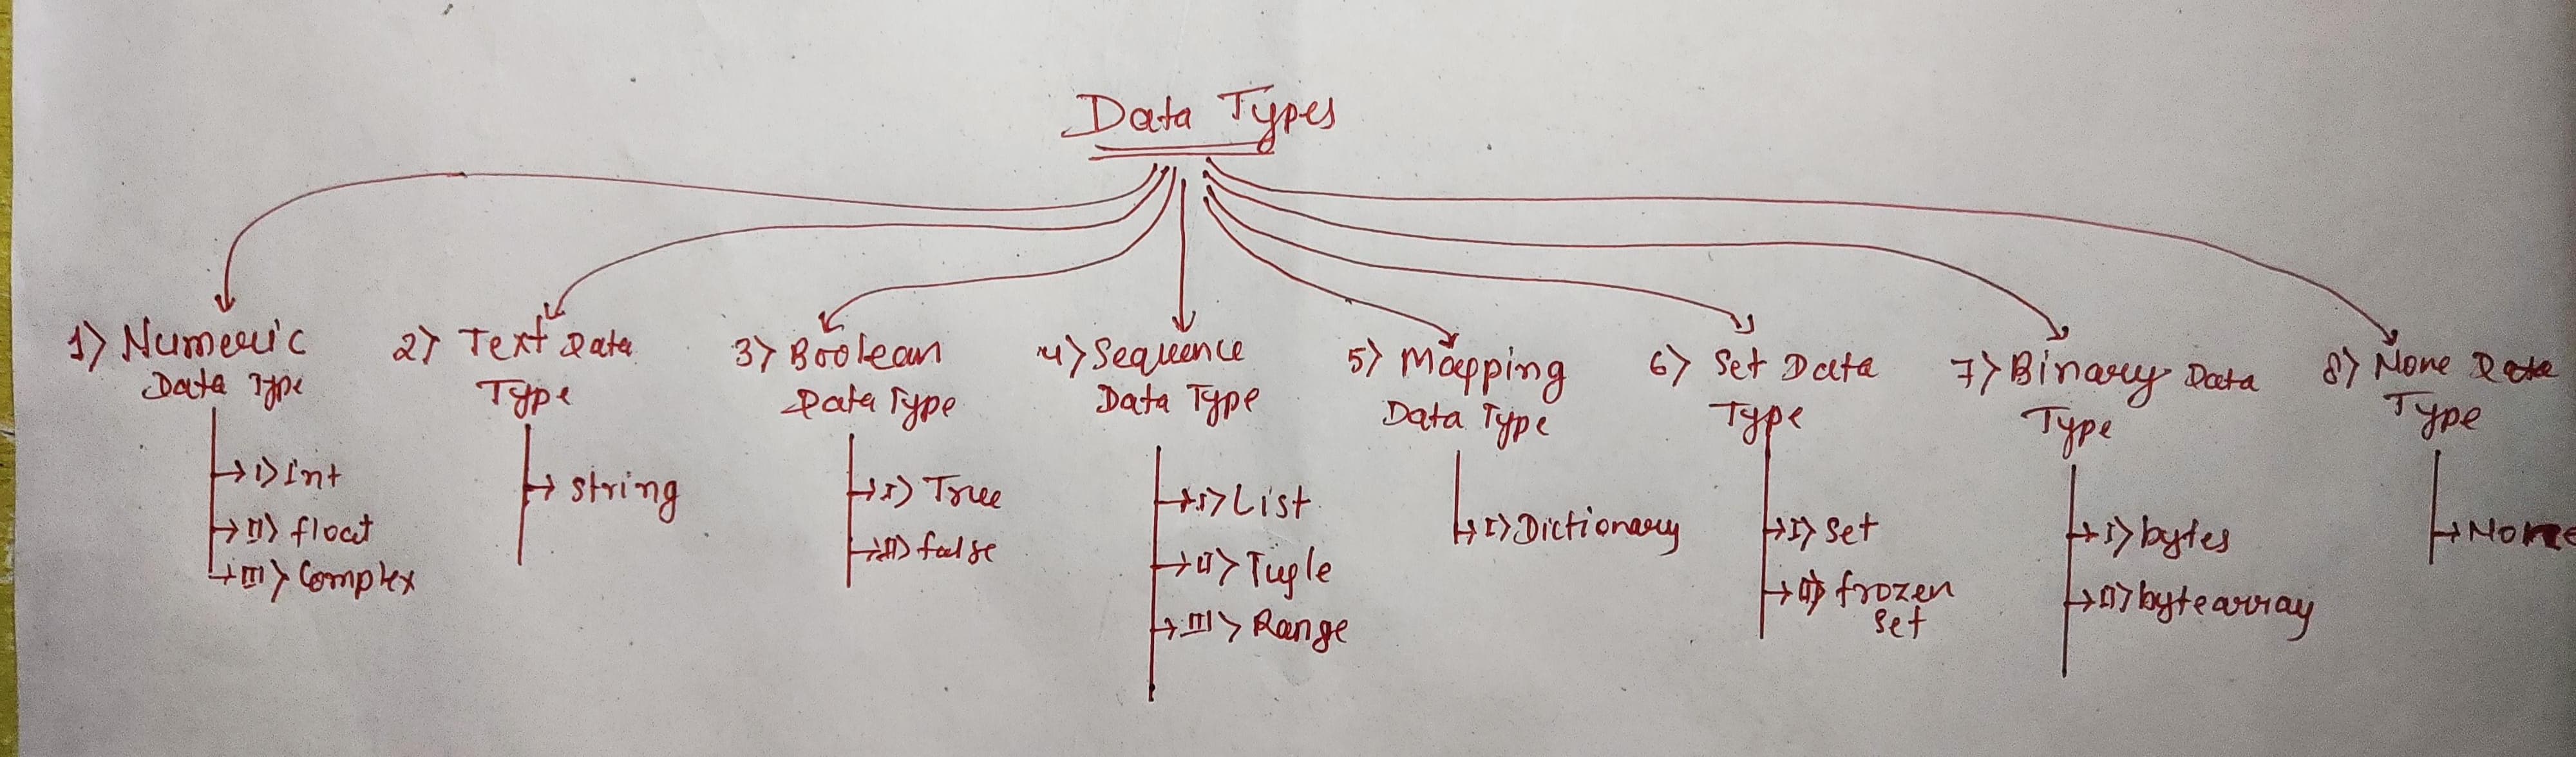 Data Types
1) Numeric
Data Type
I) Int
II) float
III) Complex
2) Text Data
Type
string
3) Boolean
Data Type
I) True
II) false
4) Sequence
Data Type
I) List
II) Tuple
III) Range
5) Mapping
Data Type
I) Dictionary
6) Set Data
Type
I) Set
II) frozen
set
7) Binary Data
Type
I) bytes
II) bytearray
8) None Data
Type
None